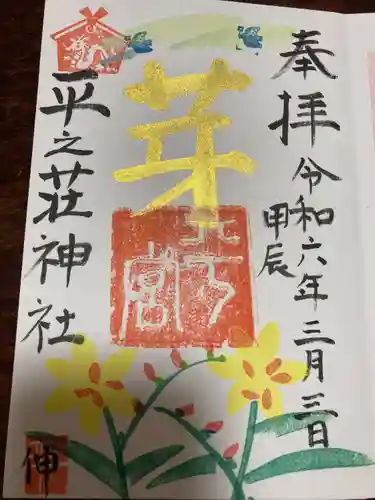 奉拝
令和六年二月三日
甲辰
芽
平之荘神社
伸